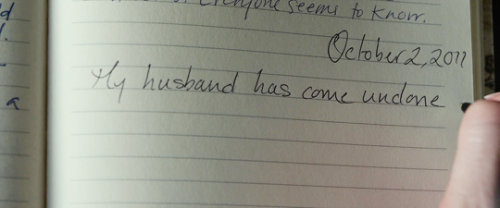 Everyone seems to know.
October 2, 2011
My husband has come undone